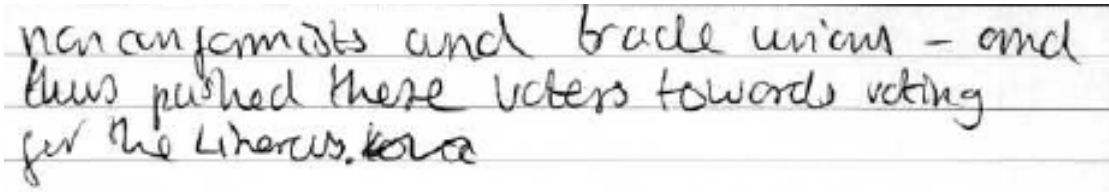 nonconformists and trade unions - and
thus pushed these voters towards voting
for the Liberals.